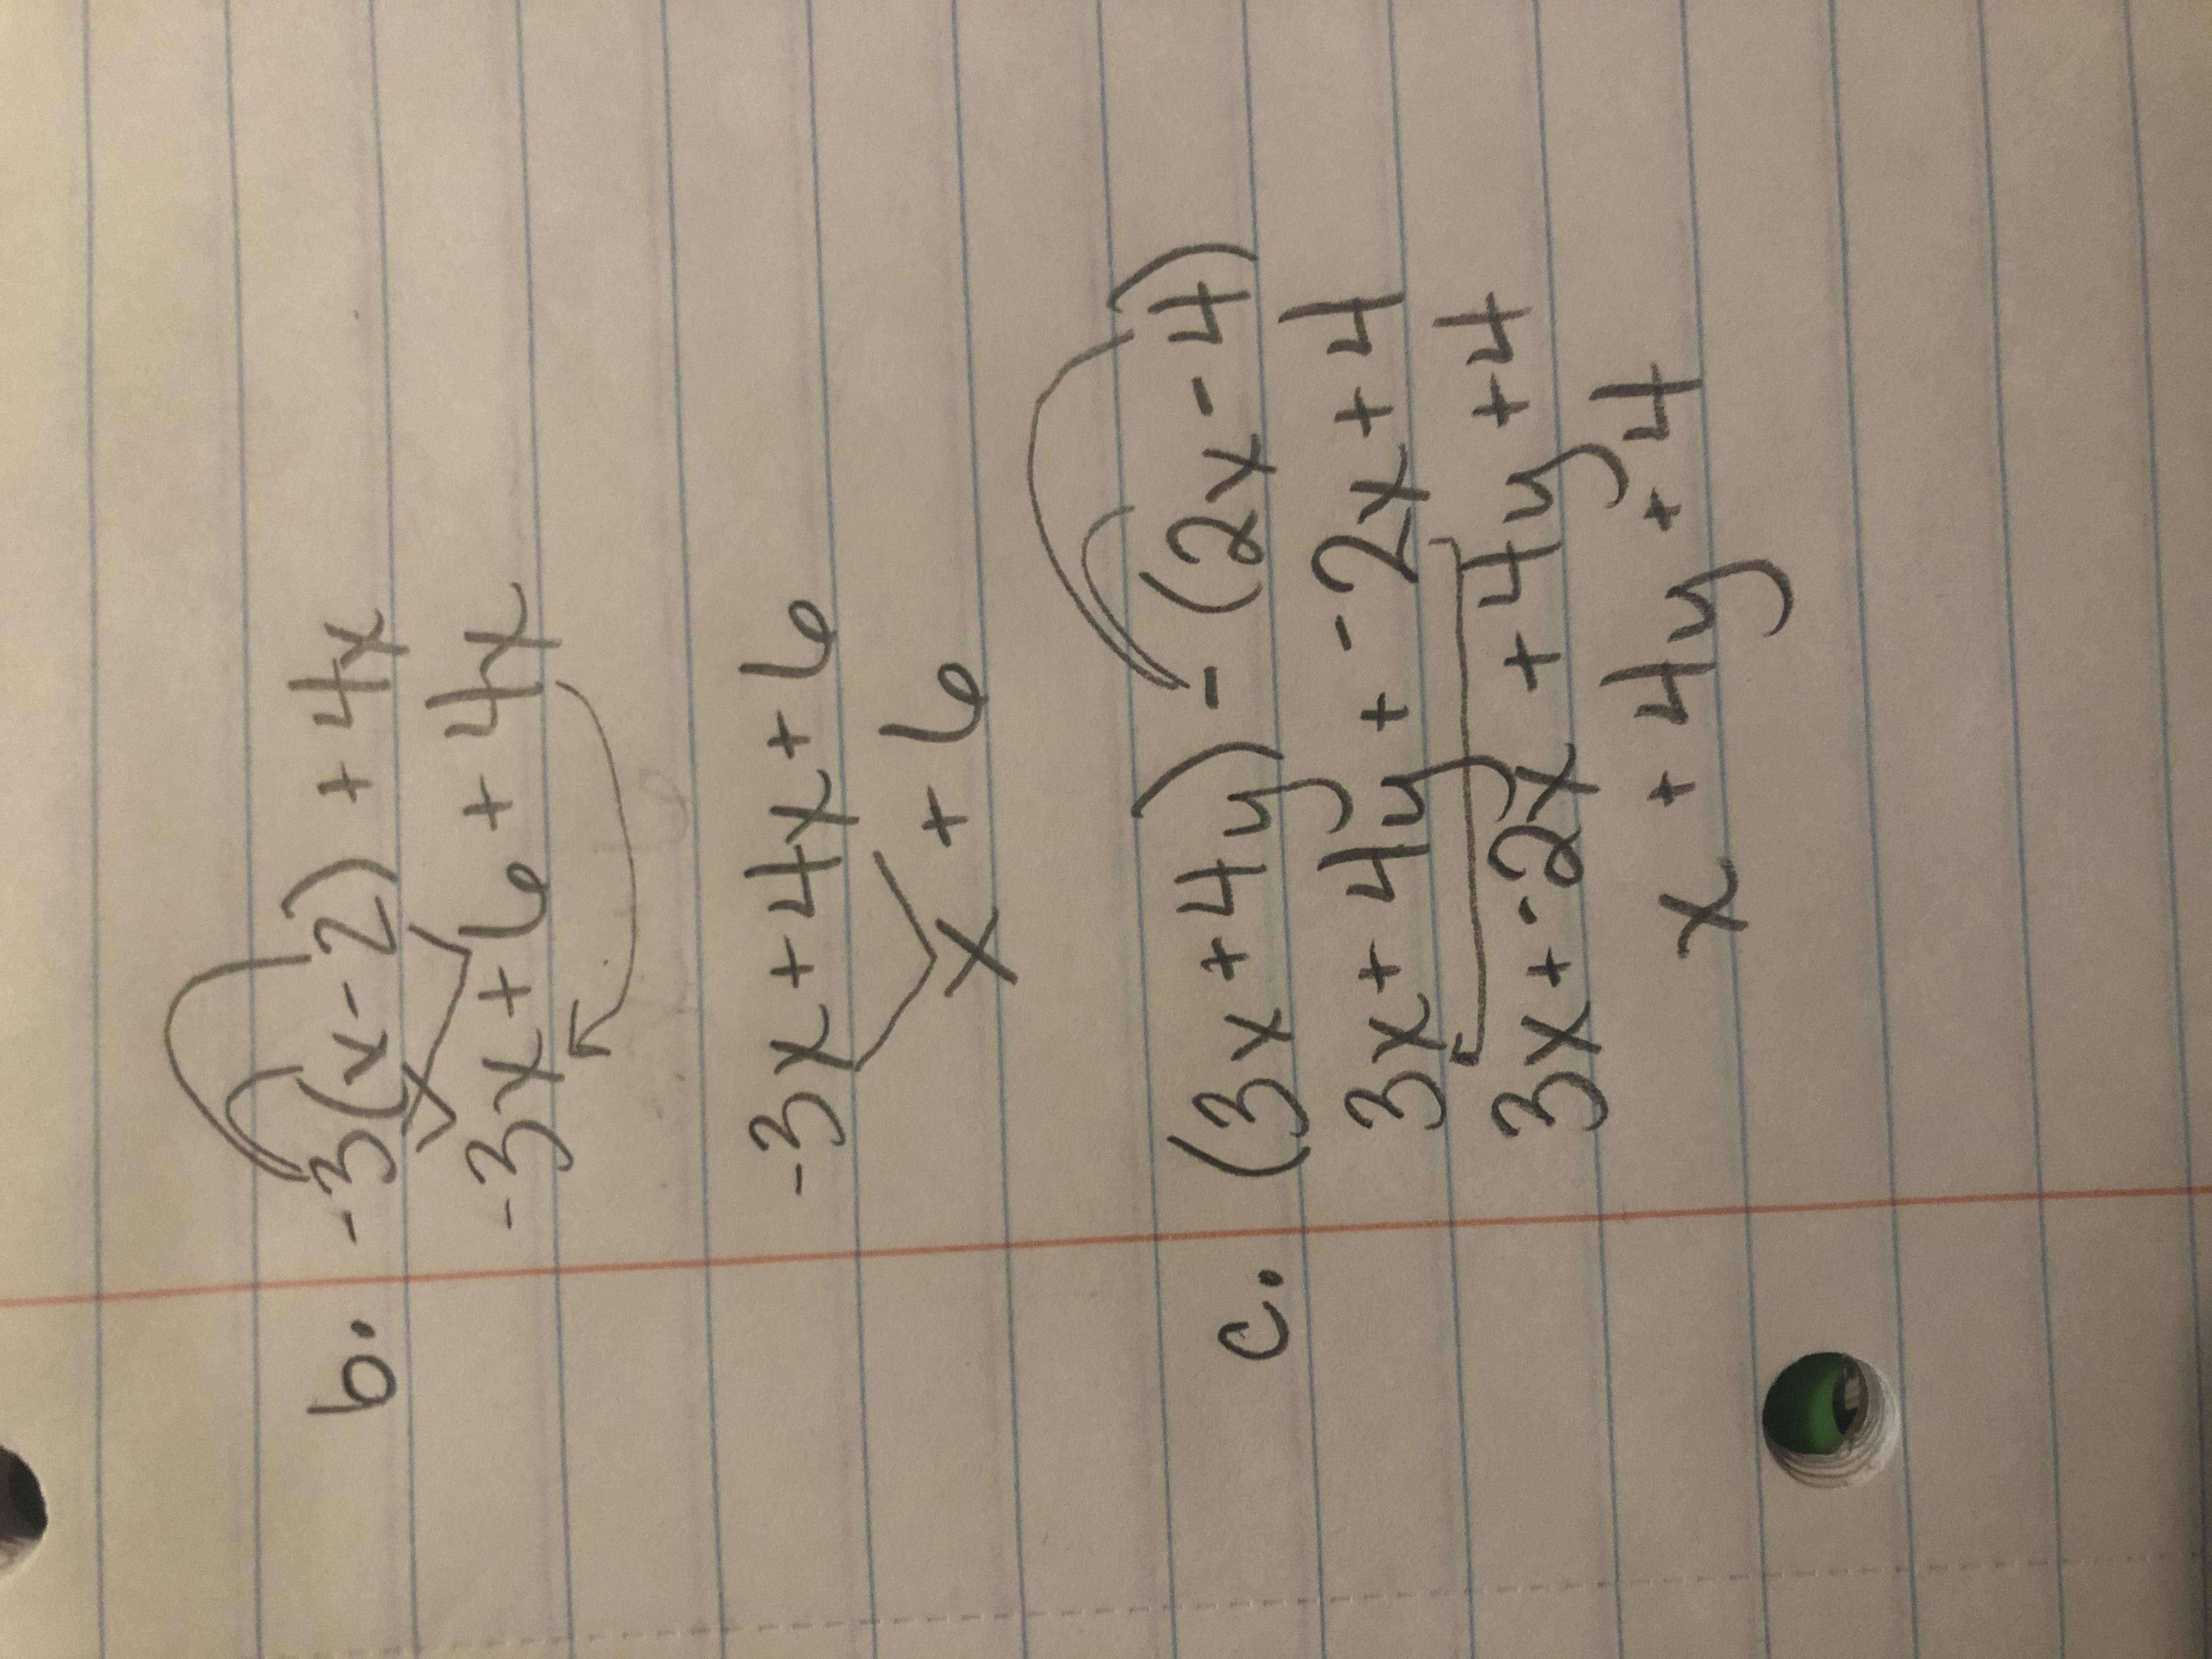 b. -3(x-2) + 4x
-3x + 6 + 4x
-3x + 4x + 6
x + 6
c. (3x + 4y) - (2x - 4)
3x + 4y + -2x + 4
3x + -2x + 4y + 4
x + 4y + 4